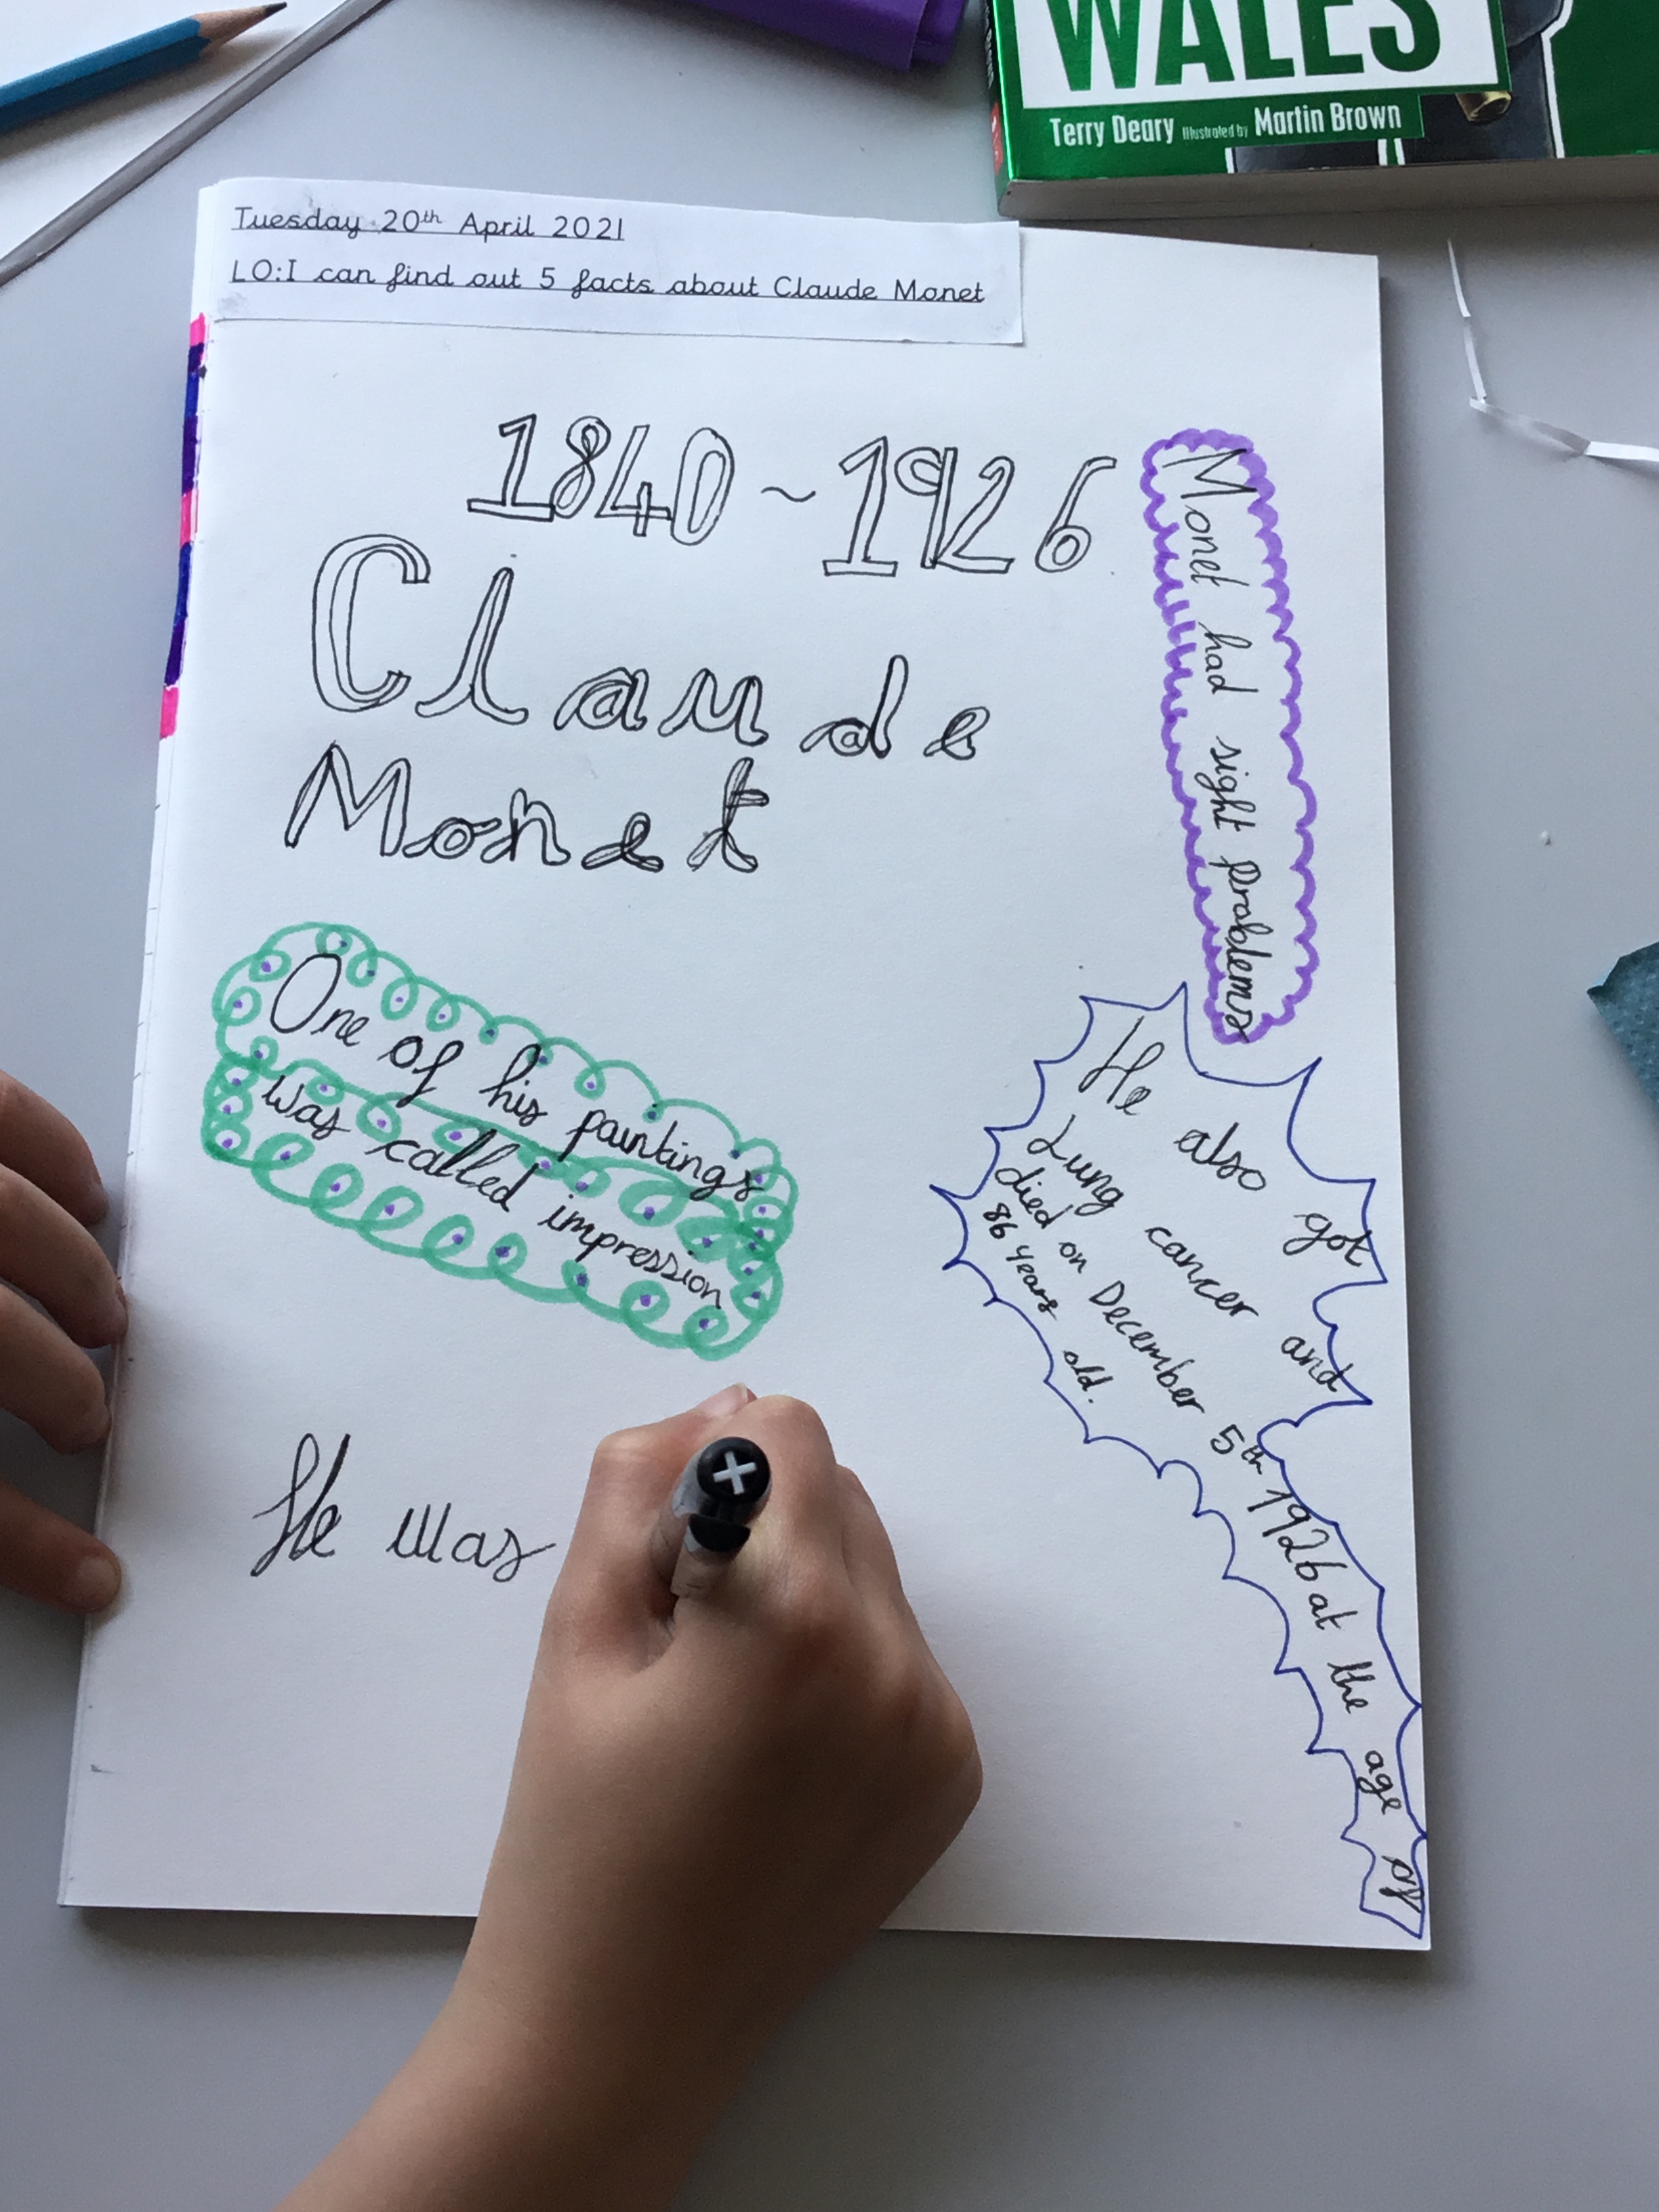 WALES
Terry Deary Illustrated by Martin Brown
Tuesday 20th April 2021
LO:I can find out 5 facts about Claude Monet
1840~1926
Claude
Monet
Monet had sight problems
One of his paintings
was called impression
He also got
Lung cancer and
died on December 5th 1926 at the age of
86 years old.
He was